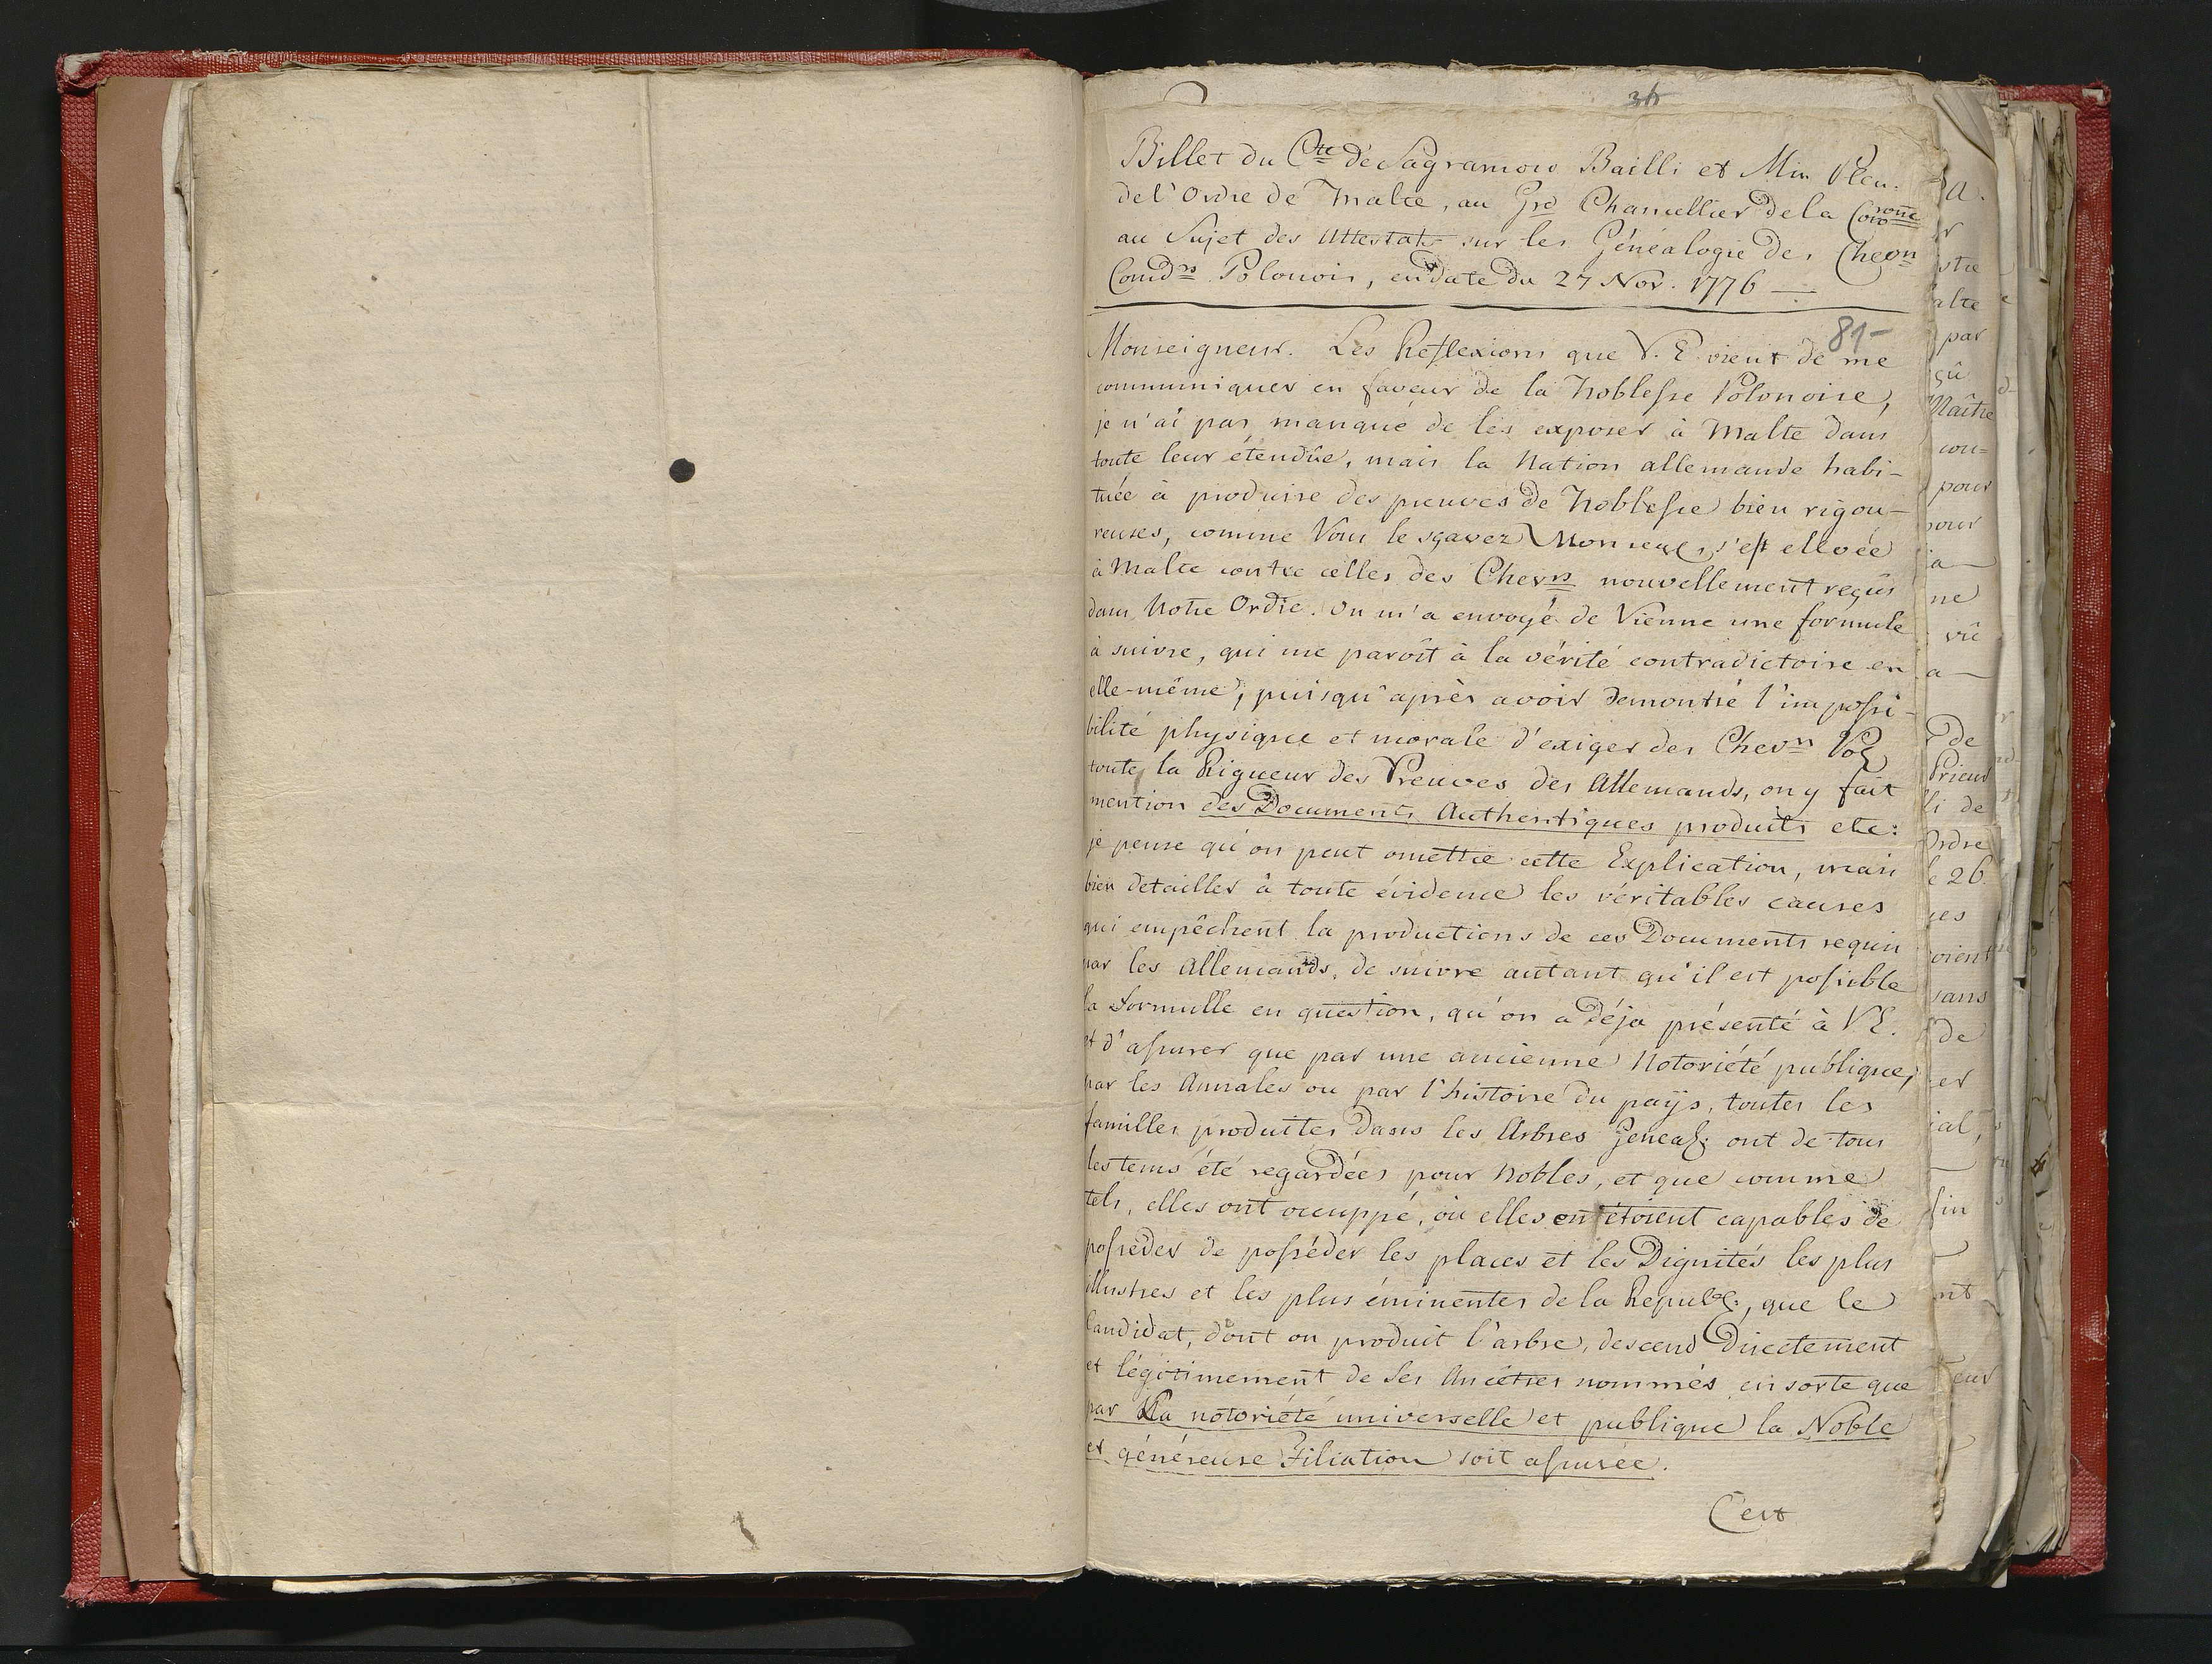 36
Billet du Cte de Sagramoso Bailli et Min Plen.
de l'Ordre de Malte, au Grd Chancellier de la Couronne
au Sujet des Attestats sur les Généalogie des Chevrs
Comdrs Polonois, en date du 27 Nov. 1776
81-
Monseigneur. Les Reflexions que V. E. vient de me
communiquer en faveur de la Noblesse Polonoise,
je n'ai pas manqué de les exposer à Malte dans
toute leur étendüe, mais la Nation allemande habi-
tuée à produire des preuves de Noblesse bien rigou-
reuses, comme Vous le sçavez Monseigr, s'est ellevée
à Malte contre celles des Chevrs nouvellement reçus
dans Notre Ordre. On m'a envoyé de Vienne une formule
à suivre, qui me paroît à la vérité contradictoire en
elle-même, puisqu'après avoir demontré l'impossi-
bilité physique et morale d'exiger des Chevrs Pol
toute la Rigueur des Preuves des Allemands, on y fait
mention des Documents Authentiques produits etc:
je pense qu'on peut omettre cette Explication, mais
bien detailler à toute évidence les véritables causes
qui empêchent la productions de ces Documents requis
par les Allemands, de suivre autant qu'il est possible
la formulle en question, qu'on a déja présenté à V E.
et d'assurer que par une ancienne Notoriété publique,
par les Annales ou par l'histoire du païs, toutes les
familles produites dans les Arbres Geneal: ont de tous
les tems été regardées pour Nobles, et que comme
tels, elles ont occuppé, où elles en étoient capables de
posseder de posséder les places et les Dignités les plus
illustres et les plus éminentes de la Republ:, que le
Candidat, dont on produit l'arbre, descend directement
et légitimement de ses Ancêtres nommés en sorte que
par la notoriété universelle et publique la Noble
et généreuse Filiation soit assurée.
C'est